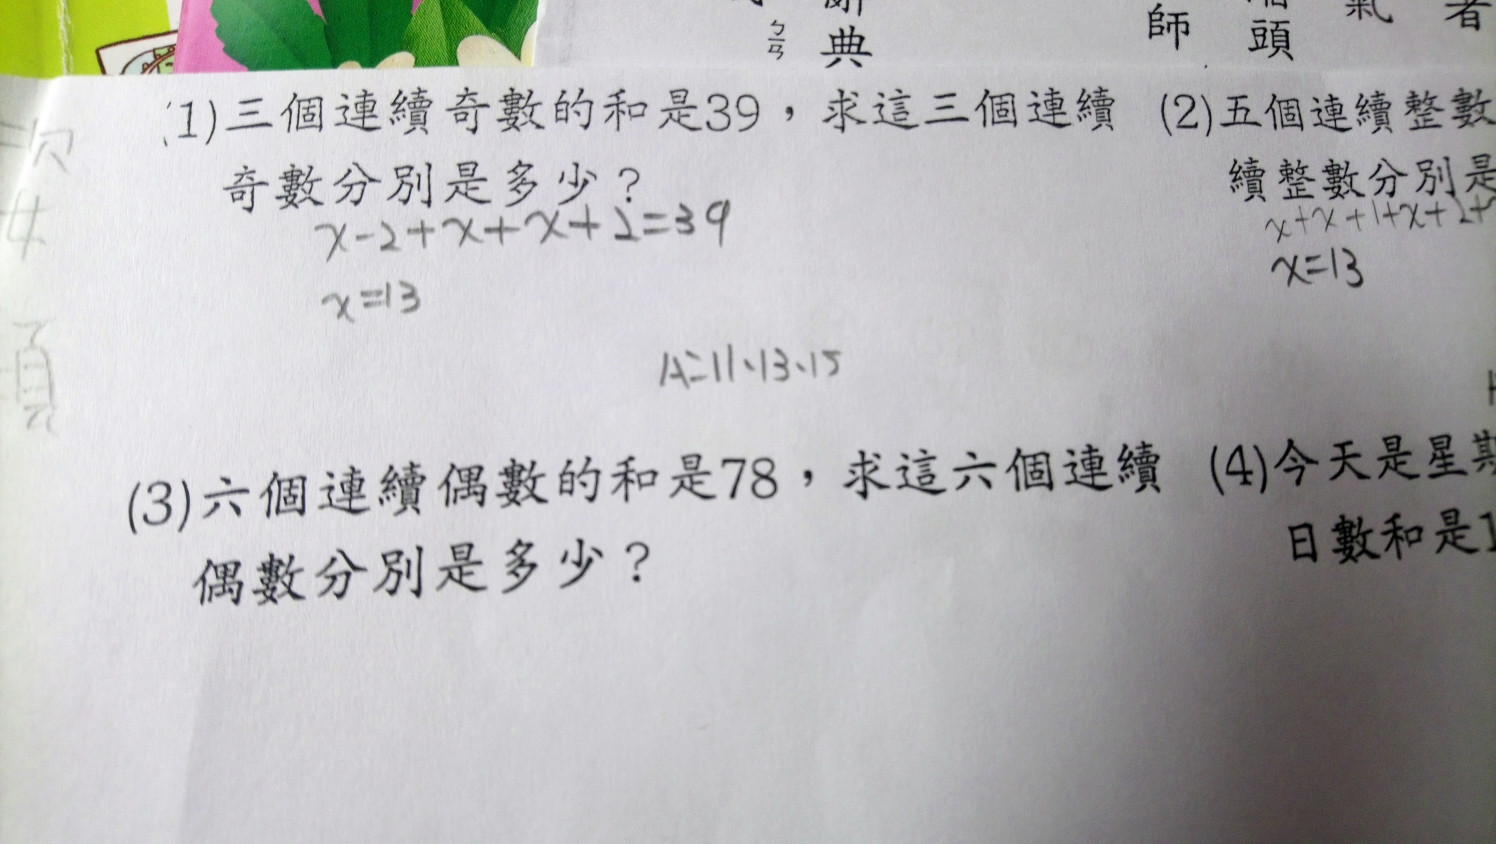 ㄅㄢ
典
師
頭
氣
者
(1)三個連續奇數的和是39，求這三個連續
奇數分別是多少？
x-2+x+x+2=39
x=13
A=11、13、15
(2)五個連續整數
續整數分別是
x+x+1+x+2+
x=13
(3)六個連續偶數的和是78，求這六個連續
偶數分別是多少？
(4)今天是星期
日數和是1